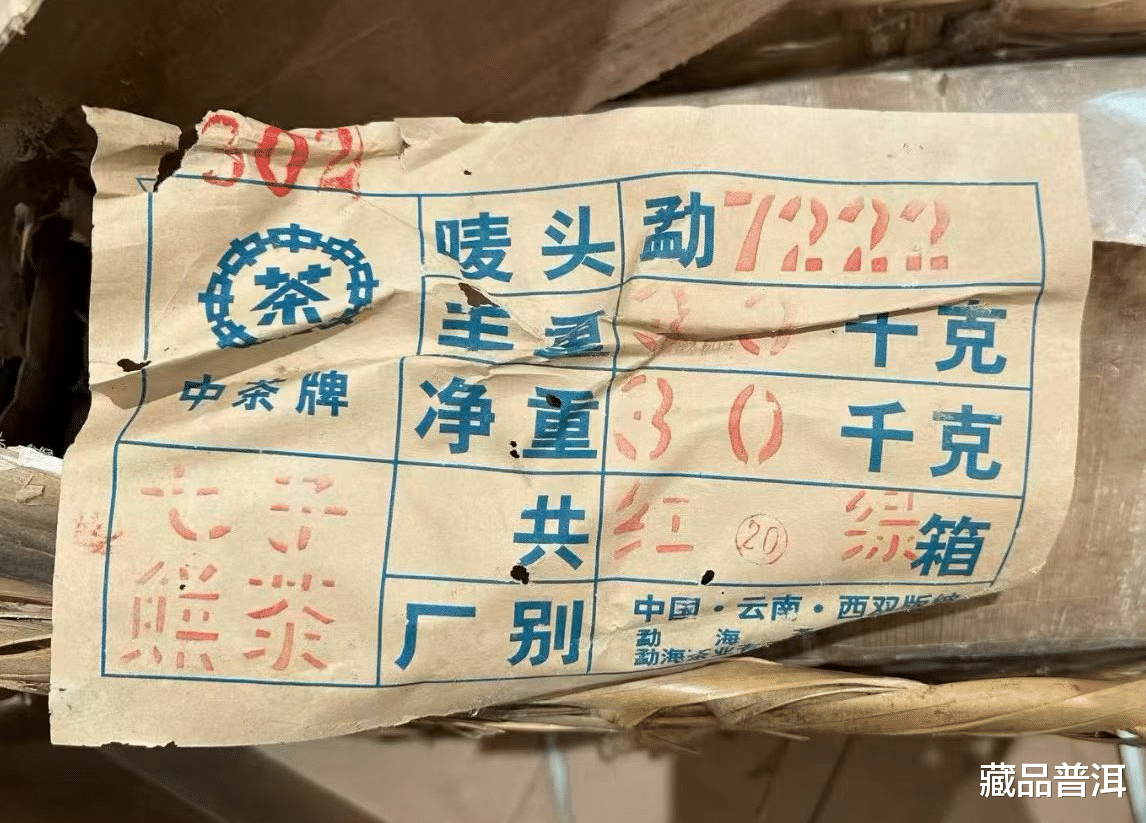 302
茶
中茶牌
唛头 勐7222
毛重 30 千克
净重 30 千克
七子
饼茶
共 红 20 绿 箱
厂别
中国·云南·西双版纳
勐海
勐海茶业
藏品普洱